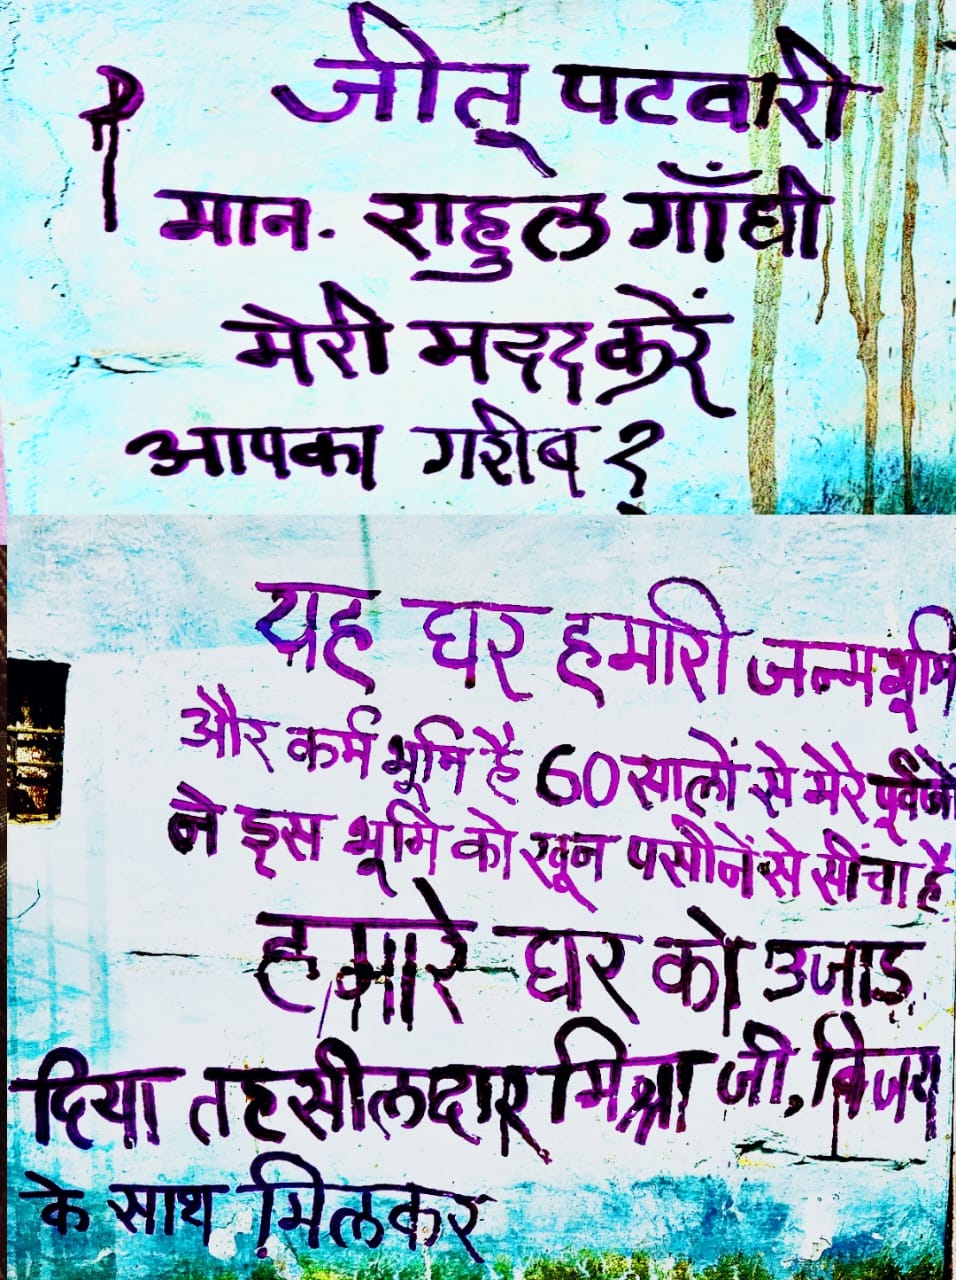 जीतू पटवारी
मान. राहुल गाँधी
मेरी मदद करें
आपका गरीब ?
यह घर हमारी जन्मभूमि
और कर्म भूमि है 60 सालों से मेरे पूर्वजों
ने इस भूमि को खून पसीनें से सींचा है
हमारे घर को उजाड़
दिया तहसीलदार मिश्रा जी, विजय
के साथ मिलकर